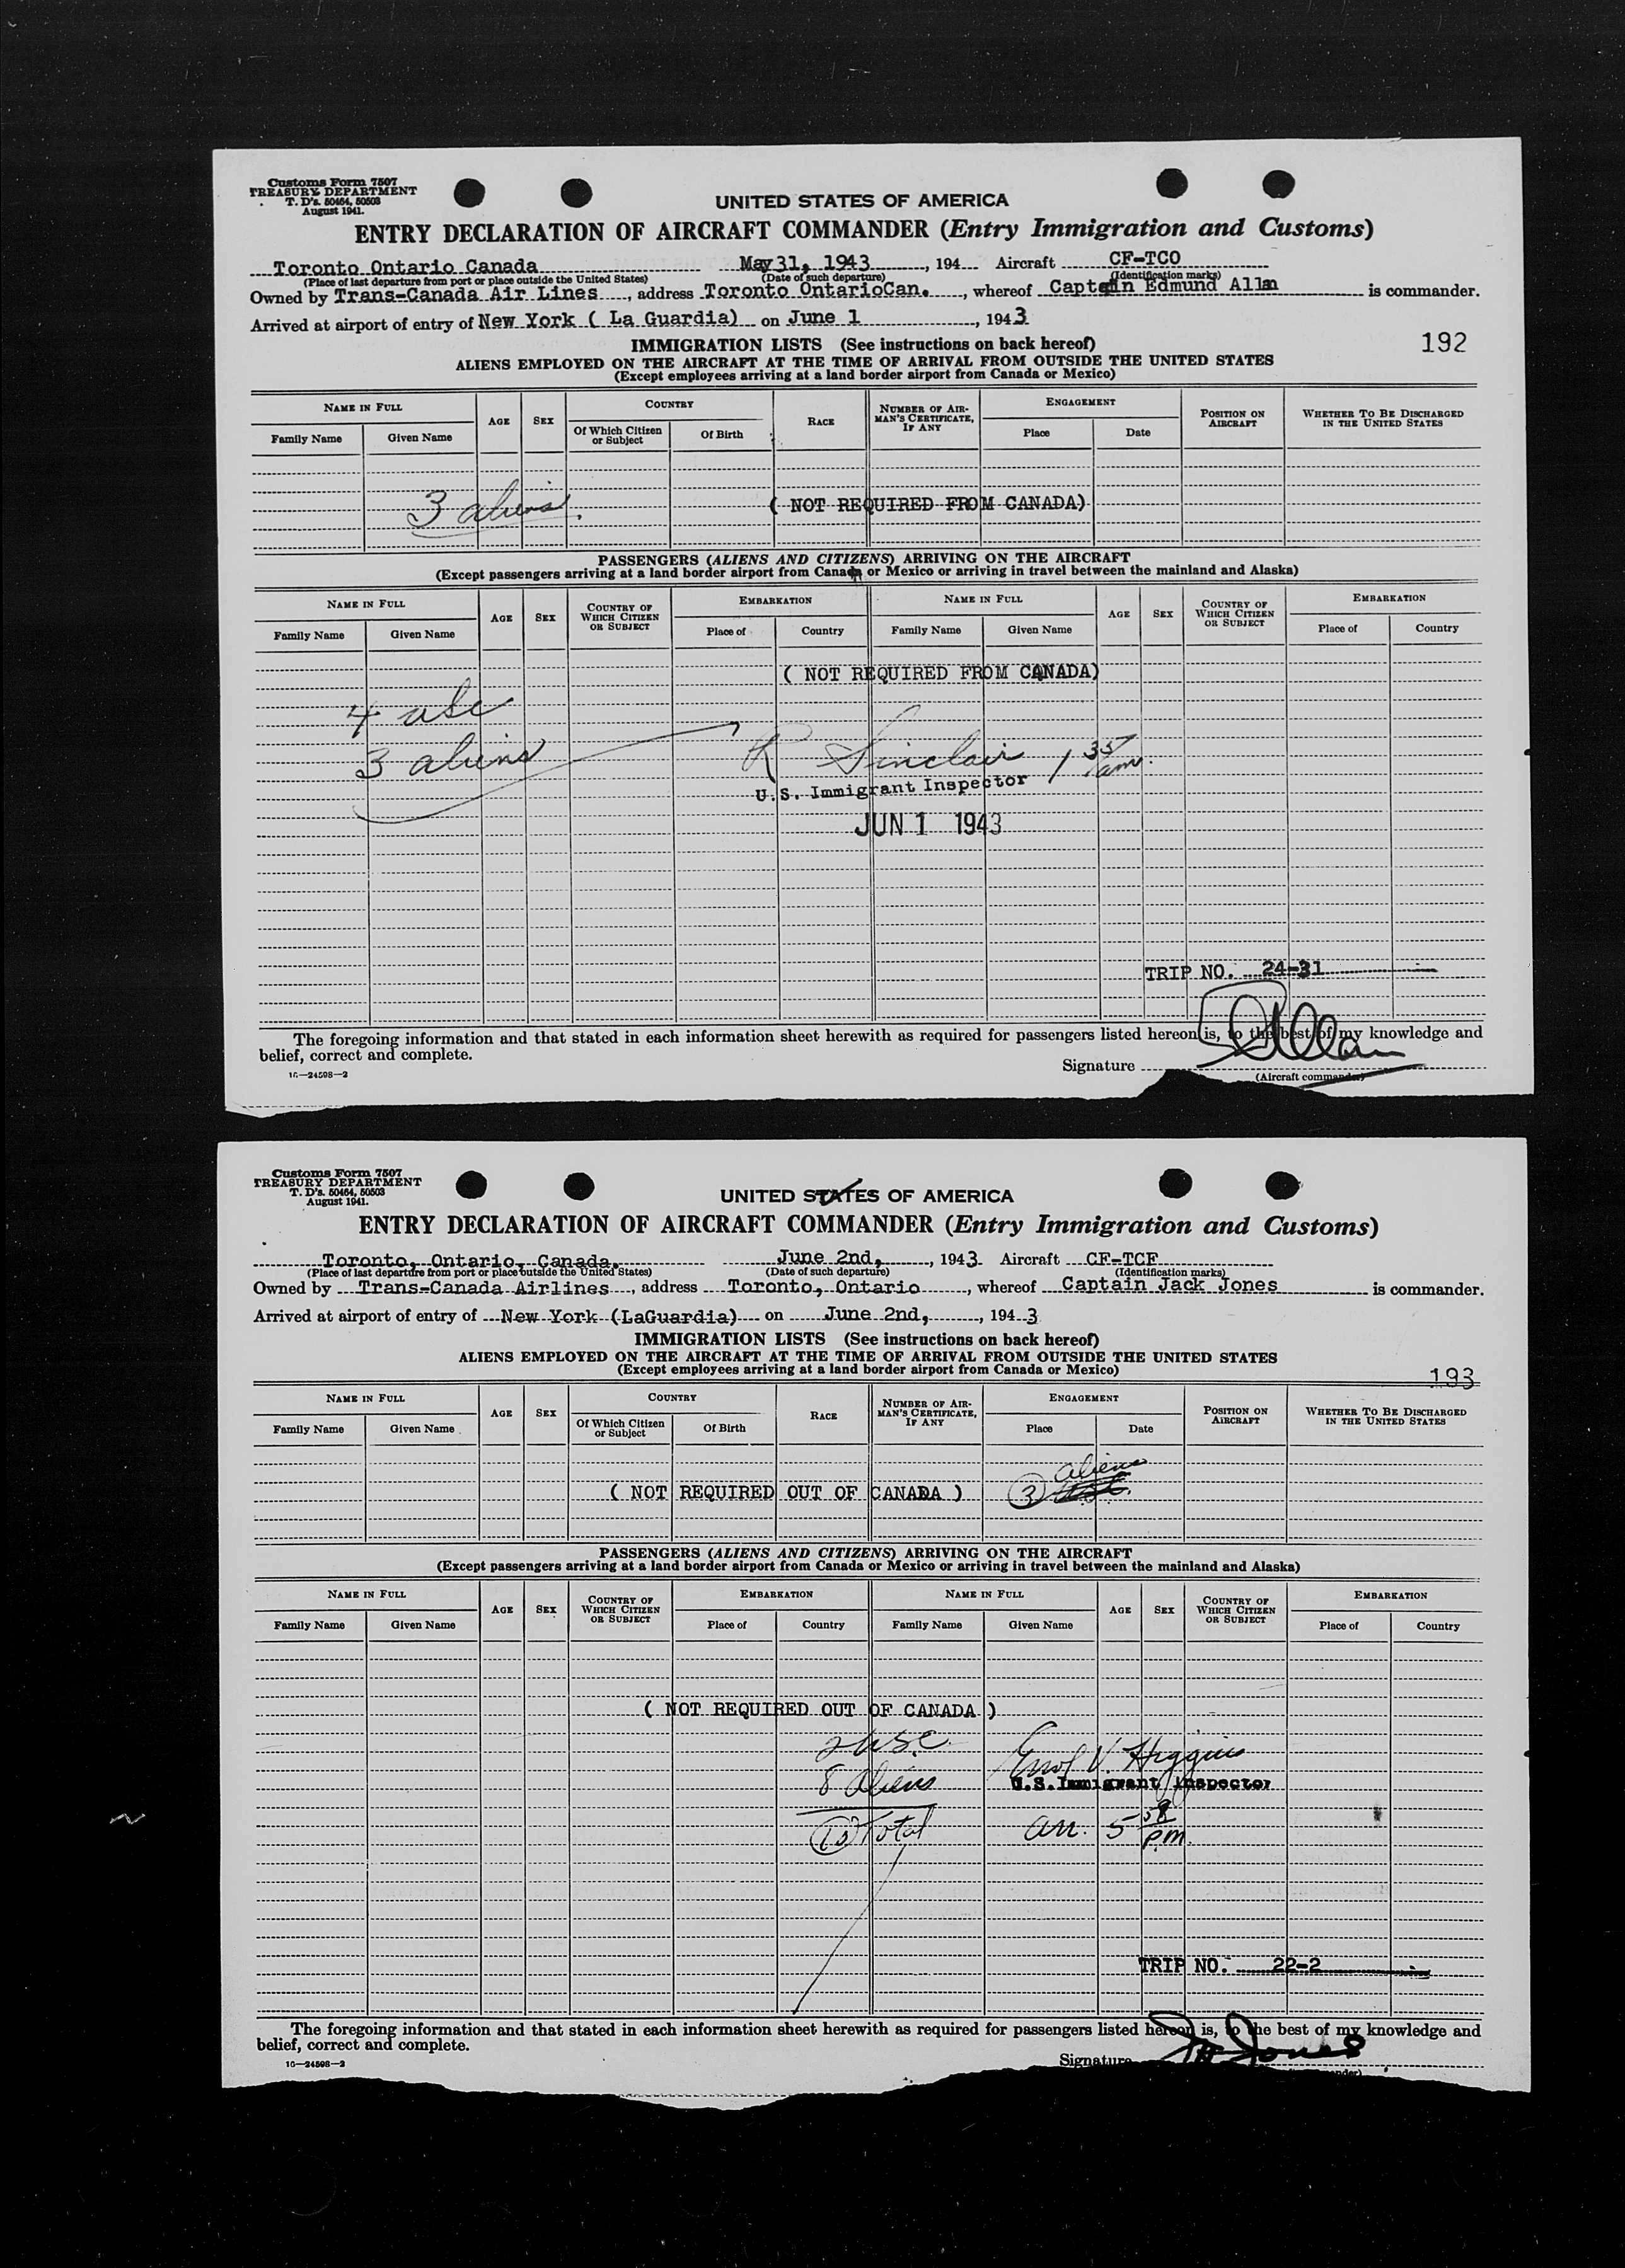 Customs Form 7507
TREASURY DEPARTMENT
T. D's. 50464, 50503
August 1941.
UNITED STATES OF AMERICA
ENTRY DECLARATION OF AIRCRAFT COMMANDER (Entry Immigration and Customs)
Toronto Ontario Canada May 31, 1943, 194 Aircraft CF-TCO
(Place of last departure from port or place outside the United States) (Date of such departure) (Identification marks)
Owned by Trans-Canada Air Lines, address Toronto OntarioCan., whereof Captain Edmund Allan is commander.
Arrived at airport of entry of New York ( La Guardia) on June 1, 1943
192
IMMIGRATION LISTS (See instructions on back hereof)
ALIENS EMPLOYED ON THE AIRCRAFT AT THE TIME OF ARRIVAL FROM OUTSIDE THE UNITED STATES
(Except employees arriving at a land border airport from Canada or Mexico)
NAME IN FULL AGE SEX COUNTRY RACE NUMBER OF AIRMAN'S CERTIFICATE, IF ANY ENGAGEMENT POSITION ON AIRCRAFT WHETHER TO BE DISCHARGED IN THE UNITED STATES
Family Name Given Name Of Which Citizen or Subject Of Birth Place Date
3 aliens. ( NOT REQUIRED FROM CANADA)
PASSENGERS (ALIENS AND CITIZENS) ARRIVING ON THE AIRCRAFT
(Except passengers arriving at a land border airport from Canada or Mexico or arriving in travel between the mainland and Alaska)
NAME IN FULL AGE SEX COUNTRY OF WHICH CITIZEN OR SUBJECT EMBARKATION NAME IN FULL AGE SEX COUNTRY OF WHICH CITIZEN OR SUBJECT EMBARKATION
Family Name Given Name Place of Country Family Name Given Name Place of Country
( NOT REQUIRED FROM CANADA)
4 usc
3 aliens R Sinclair 1 35 am.
U.S. Immigrant Inspector
JUN 1 1943
TRIP NO. 24-31
The foregoing information and that stated in each information sheet herewith as required for passengers listed hereon is, to the best of my knowledge and
belief, correct and complete.
Signature
16—24598—2 (Aircraft commander)
Customs Form 7507
TREASURY DEPARTMENT
T. D's. 50464, 50503
August 1941.
UNITED STATES OF AMERICA
ENTRY DECLARATION OF AIRCRAFT COMMANDER (Entry Immigration and Customs)
Toronto, Ontario, Canada. June 2nd, , 1943 Aircraft CF-TCF
(Place of last departure from port or place outside the United States) (Date of such departure) (Identification marks)
Owned by Trans-Canada Airlines, address Toronto, Ontario, whereof Captain Jack Jones is commander.
Arrived at airport of entry of New York (LaGuardia) on June 2nd, , 1943
IMMIGRATION LISTS (See instructions on back hereof)
ALIENS EMPLOYED ON THE AIRCRAFT AT THE TIME OF ARRIVAL FROM OUTSIDE THE UNITED STATES
(Except employees arriving at a land border airport from Canada or Mexico)
193
NAME IN FULL AGE SEX COUNTRY RACE NUMBER OF AIRMAN'S CERTIFICATE, IF ANY ENGAGEMENT POSITION ON AIRCRAFT WHETHER TO BE DISCHARGED IN THE UNITED STATES
Family Name Given Name Of Which Citizen or Subject Of Birth Place Date
aliens
( NOT REQUIRED OUT OF CANADA ) 3
PASSENGERS (ALIENS AND CITIZENS) ARRIVING ON THE AIRCRAFT
(Except passengers arriving at a land border airport from Canada or Mexico or arriving in travel between the mainland and Alaska)
NAME IN FULL AGE SEX COUNTRY OF WHICH CITIZEN OR SUBJECT EMBARKATION NAME IN FULL AGE SEX COUNTRY OF WHICH CITIZEN OR SUBJECT EMBARKATION
Family Name Given Name Place of Country Family Name Given Name Place of Country
( NOT REQUIRED OUT OF CANADA )
2 usc. Errol V. Higgins
8 aliens U.S. Immigrant Inspector
10 Total arr. 5 58 pm.
TRIP NO. 22-2
The foregoing information and that stated in each information sheet herewith as required for passengers listed hereon is, to the best of my knowledge and
belief, correct and complete.
Signature Jones
16—24598—2